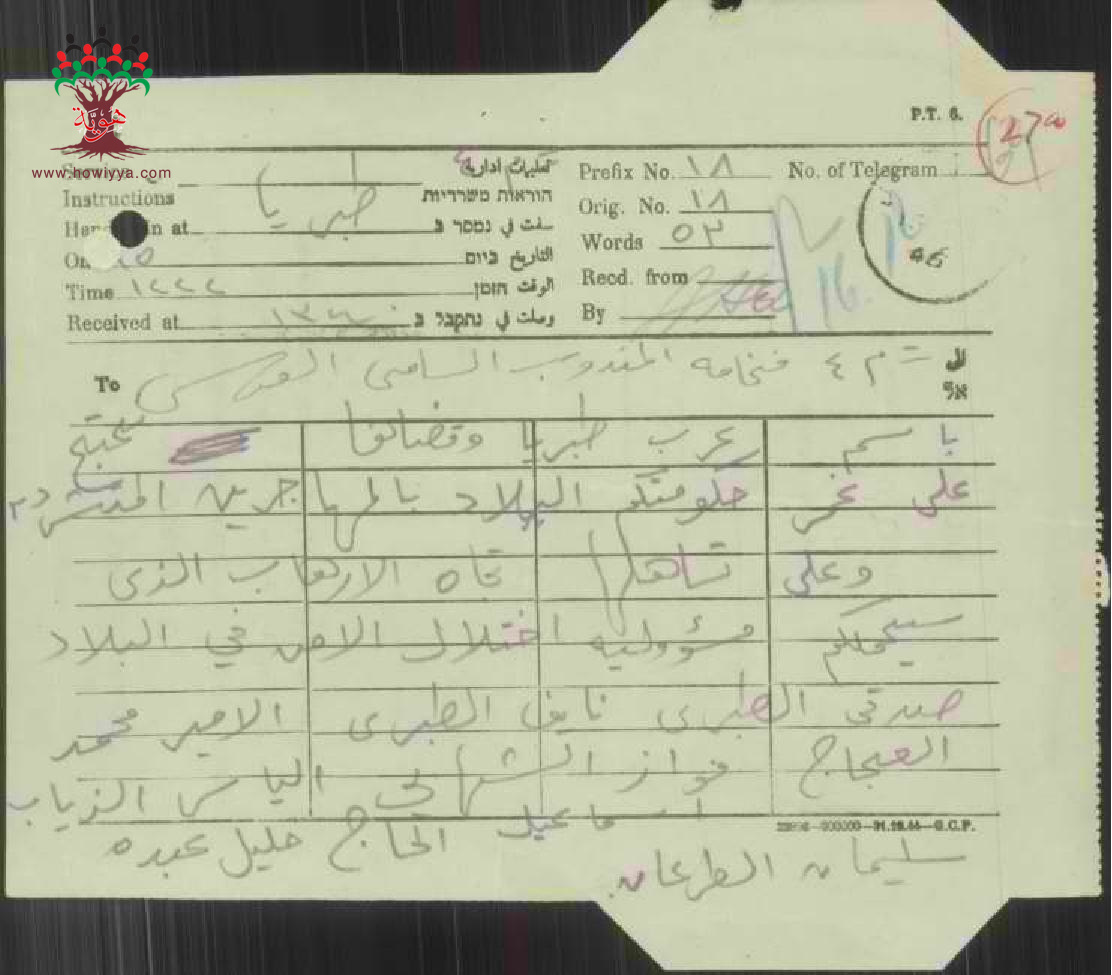 هوية
www.howiyya.com
P.T. 6.
تعليمات ادارية
Instructions
הוראות משרדיות
Prefix No. ١٨
No. of Telegram
Orig. No. ١٨
طبريا
at
سلمت في נמסר ב
Words ٥٢
On
التاريخ ביום
Recd. from
Time ١٢٢٢
الوقت הזמן
By
Received at
وصلت في נתקבל ב
To
الى
אל
م ٤ فخامه المندوب السامى القدس
باسم عرب طبريا وقضائها نحتج
على غمر حكومتكم البلاد بالمهاجرين
وعلى تساهلها تجاه الارهاب الذى
سيحملكم مسؤوليه اختلال الامن في البلاد
صدقى الطبرى نايف الطبرى الامير محمد
فواز الشهابى الياس الذياب
اسماعيل الحاج خليل عبده
سليمان
G.C.P.